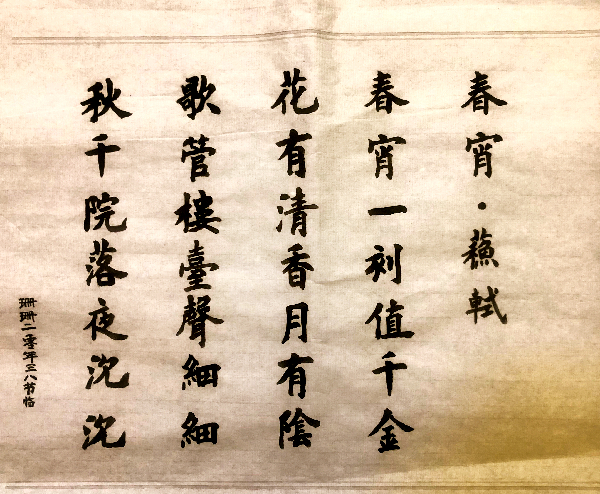 春宵·蘇軾
春宵一刻值千金
花有清香月有陰
歌管樓臺聲細細
秋千院落夜沉沉
珊珊二零年三八节临